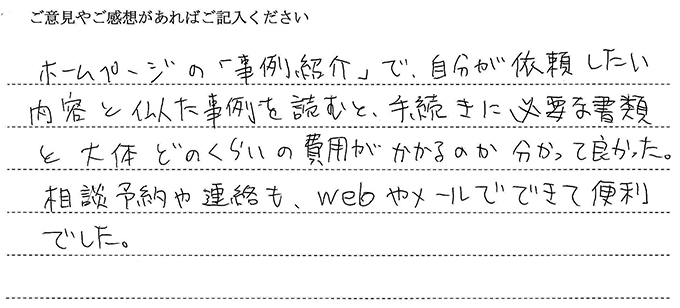 ご意見やご感想があればご記入ください
ホームページの「事例紹介」で、自分が依頼したい
内容と似た事例を読むと、手続きに必要な書類
と大体どのくらいの費用がかかるのか分かって良かった。
相談予約や連絡も、webやメールでできて便利
でした。